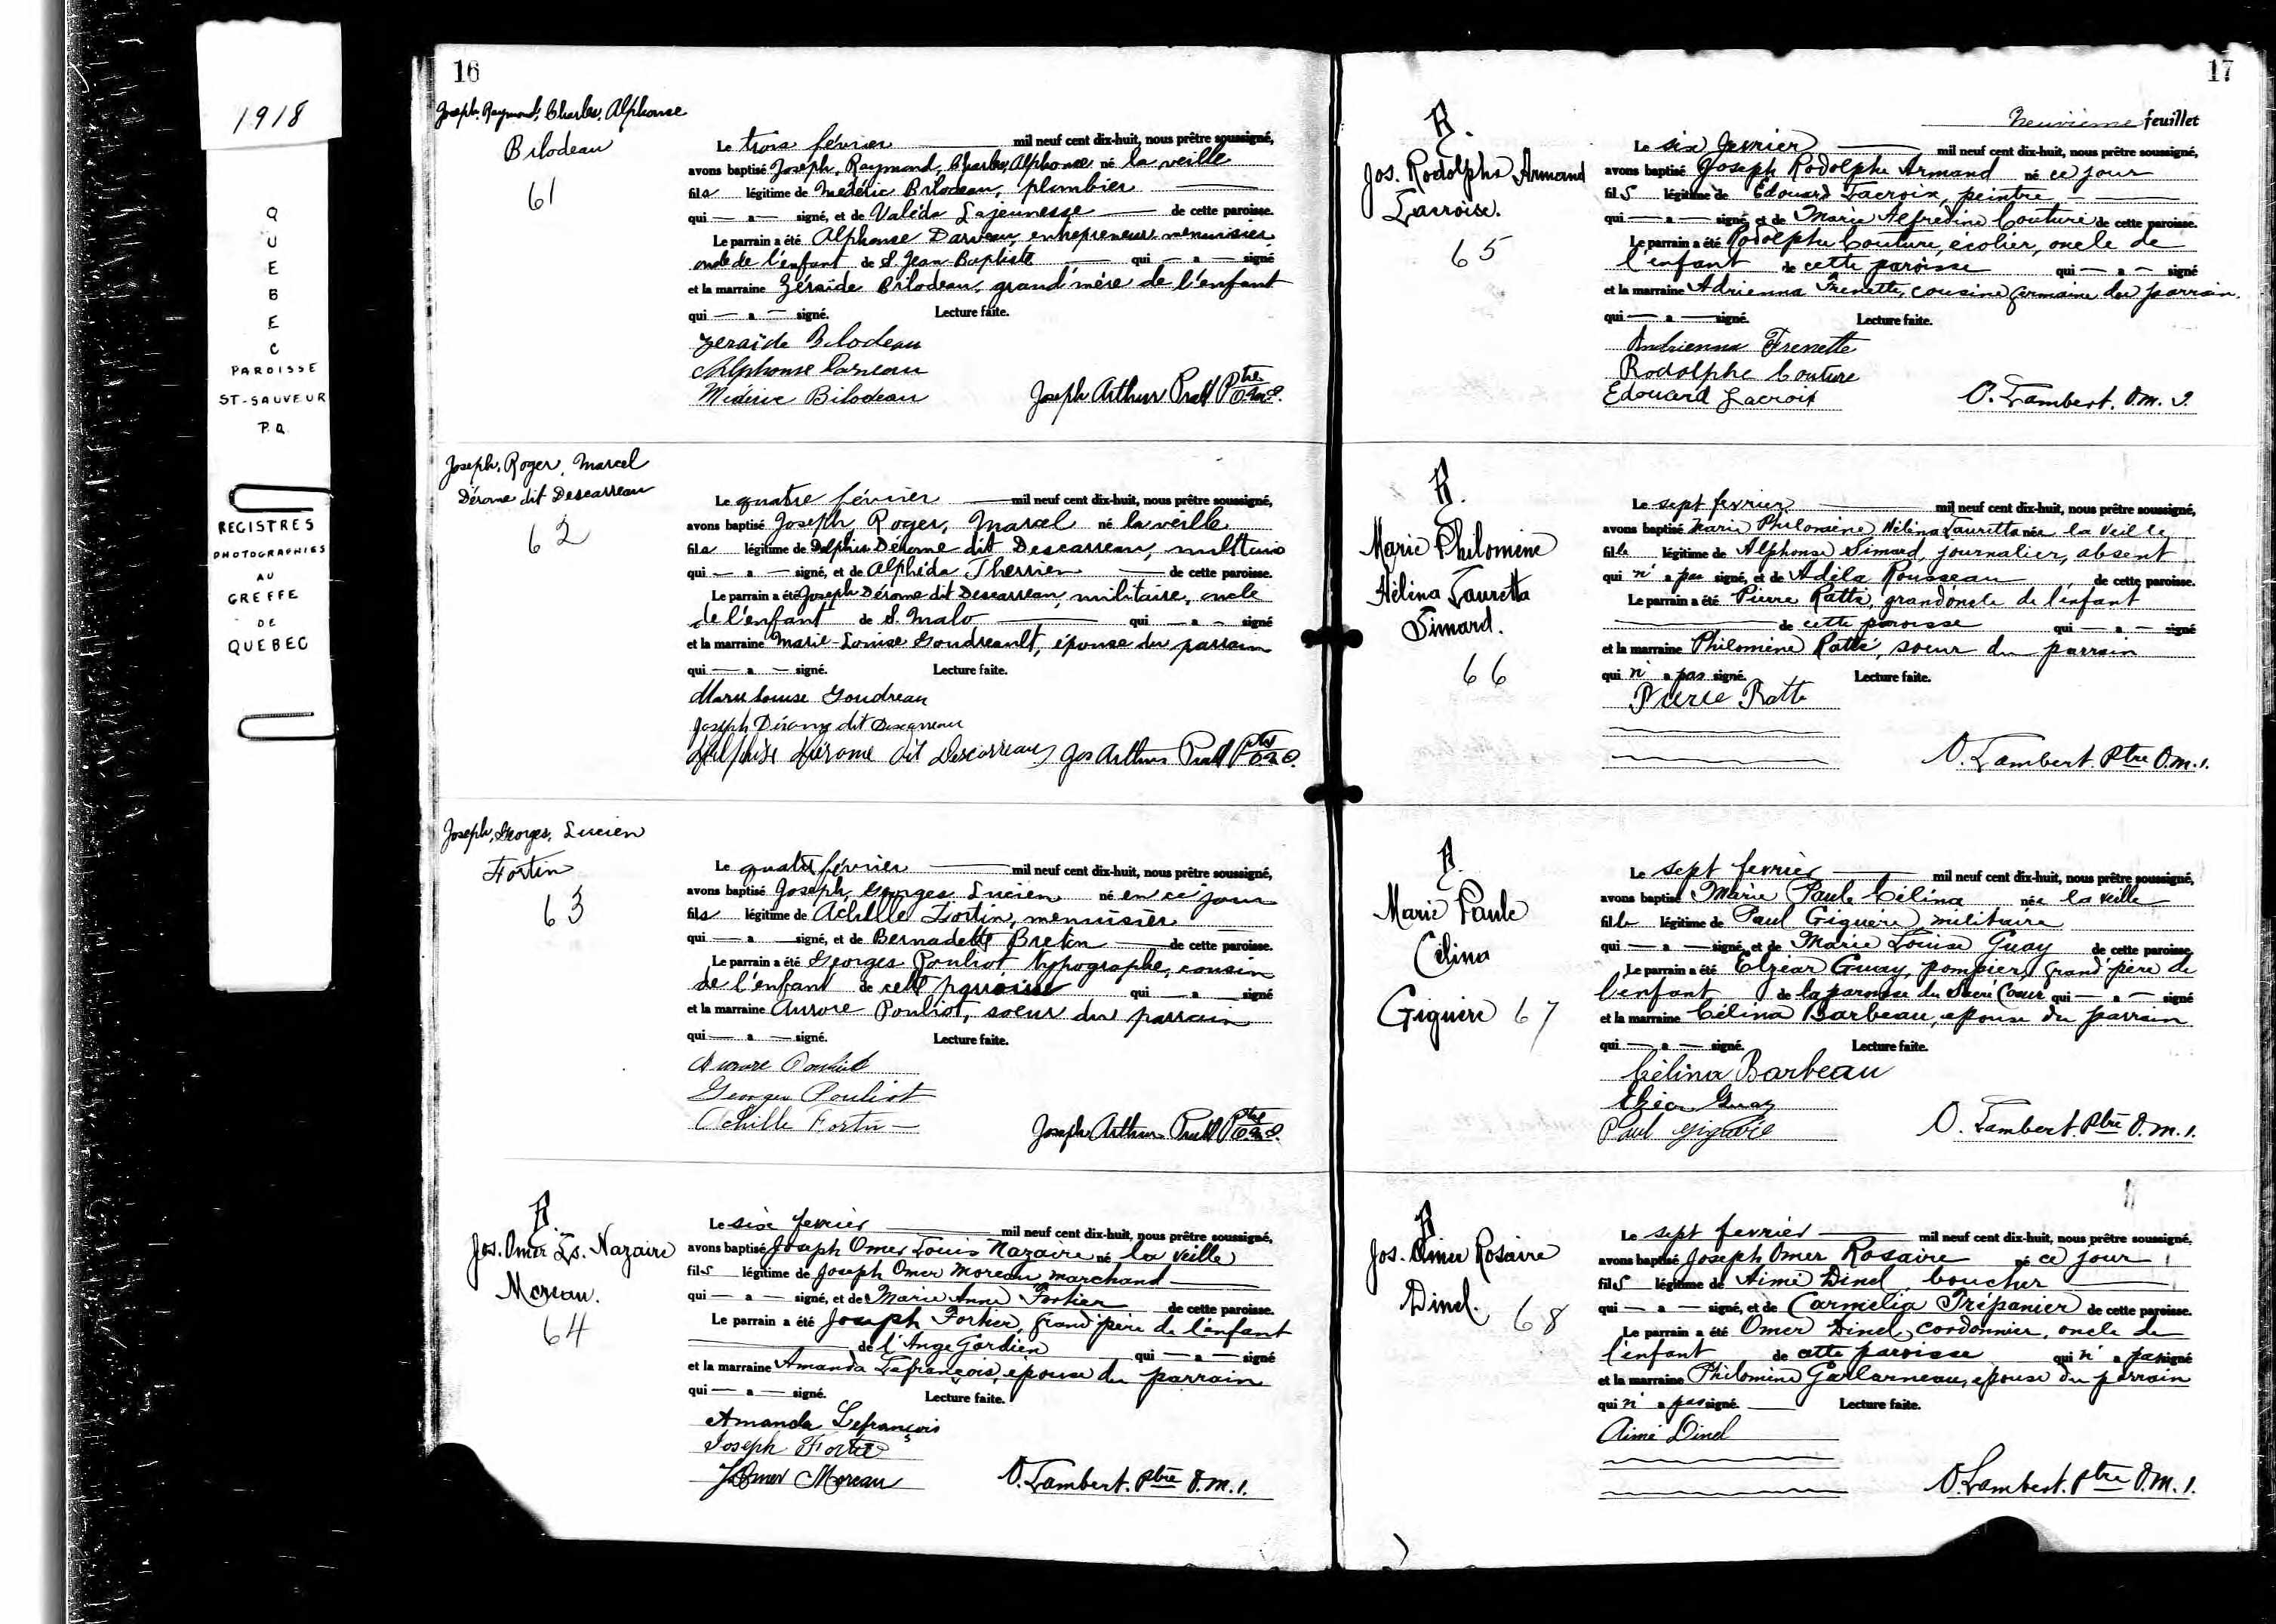 1918
QUEBEC
PAROISSE
ST-SAUVEUR
P.Q.
REGISTRES
PHOTOGRAPHIES
AU
GREFFE
DE
QUEBEC
16
Joseph, Raymond, Charles, Alphonse
Bilodeau
61
Le trois février mil neuf cent dix-huit, nous prêtre soussigné,
avons baptisé Joseph, Raymond, Charles, Alphonse né la veille
fils légitime de Médéric Bilodeau, plombier
qui — a — signé, et de Valéda Lajeunesse de cette paroisse.
Le parrain a été Alphonse Darveau, entrepreneur menuisier
oncle de l'enfant de S. Jean Baptiste qui — a — signé
et la marraine Zéraïde Bilodeau, grand'mère de l'enfant
qui — a — signé. Lecture faite.
Zeraïde Bilodeau
Alphonse Darveau
Médéric Bilodeau Joseph Arthur Ptre O.M.I.
Joseph, Roger, Marcel
Dérome dit Descarreau
62
Le quatre février mil neuf cent dix-huit, nous prêtre soussigné,
avons baptisé Joseph, Roger, Marcel né la veille
fils légitime de Delphis Dérome dit Descarreau,
qui — a — signé, et de Alphéda Therrien de cette paroisse.
Le parrain a été Joseph Dérome dit Descarreau, militaire, oncle
de l'enfant de S. Malo qui — a — signé
et la marraine Marie-Louise Goudreault, épouse du parrain
qui — a — signé. Lecture faite.
Marie Louise Goudreau
Joseph Dérome dit Descarreau
Dérome dit Descarreau Jos Arthur Ptre O.M.I.
Joseph, Georges, Lucien
Fortin
63
Le quatre février mil neuf cent dix-huit, nous prêtre soussigné,
avons baptisé Joseph, Georges Lucien né en ce jour
fils légitime de Achille Fortin, menuisier
qui — a — signé, et de Bernadette Breton de cette paroisse.
Le parrain a été Georges Pouliot typographe, cousin
de l'enfant de cette paroisse qui — a — signé
et la marraine Aurore Pouliot, soeur du parrain
qui — a — signé. Lecture faite.
Aurore Pouliot
Georges Pouliot
Achille Fortin Joseph Arthur Ptre O.M.I.
B.
Jos. Omer Ls. Nazaire
Moreau.
64
Le six fevrier mil neuf cent dix-huit, nous prêtre soussigné,
avons baptisé Joseph Omer Louis Nazaire né la veille
fils légitime de Joseph Omer Moreau marchand
qui — a — signé, et de Marie Anne Fortier de cette paroisse.
Le parrain a été Joseph Fortier, grand'père de l'enfant
de l'Ange Gardien qui — a — signé
et la marraine Amanda Lefrançois, épouse du parrain
qui — a — signé. Lecture faite.
Amanda Lefrançois
Joseph Fortier
J Omer Moreau O. Lambert. Ptre O.M.I.
17
Neuvième feuillet
B.
Jos. Rodolphe Armand
Lacroix.
65
Le six fevrier mil neuf cent dix-huit, nous prêtre soussigné,
avons baptisé Joseph Rodolphe Armand né ce jour
fils légitime de Edouard Lacroix, peintre
qui — a — signé, et de Marie Alfredine Couture de cette paroisse.
Le parrain a été Rodolphe Couture, écolier, oncle de
l'enfant de cette paroisse qui — a — signé
et la marraine Adrienna Frenette, cousine germaine du parrain.
qui — a — signé. Lecture faite.
Andrienna Frenette
Rodolphe Couture
Edouard Lacroix O. Lambert. O.M.I.
B.
Marie Philomène
Hélina Lauretta
Simard.
66
Le sept fevrier mil neuf cent dix-huit, nous prêtre soussigné,
avons baptisé Marie Philomène Hélina Lauretta née la veille
fille légitime de Alphonse Simard, journalier, absent
qui n'a pas signé, et de Adéla Rousseau de cette paroisse.
Le parrain a été Pierre Ratté, grand oncle de l'enfant
de cette paroisse qui — a — signé
et la marraine Philomène Ratté, soeur du parrain
qui n'a pas signé. Lecture faite.
Pierre Ratte
O. Lambert. Ptre O.M.I.
B.
Marie Paule
Célina
Giguère 67
Le sept fevrier mil neuf cent dix-huit, nous prêtre soussigné,
avons baptisé Marie Paule Célina née la veille
fille légitime de Paul Giguère militaire
qui — a — signé, et de Marie Louise Guay de cette paroisse.
Le parrain a été Elzéar Guay, pompier, grand'père de
l'enfant de la paroisse du Sacré Coeur qui — a — signé
et la marraine Célina Barbeau, épouse du parrain
qui — a — signé. Lecture faite.
Célina Barbeau
Elzéar Guay
Paul Giguère O. Lambert. Ptre O.M.I.
B
Jos. Omer Rosaire
Dinel. 68
Le sept fevrier mil neuf cent dix-huit, nous prêtre soussigné,
avons baptisé Joseph Omer Rosaire né ce jour
fils légitime de Aimé Dinel, boucher
qui — a — signé, et de Carmélia Trépanier de cette paroisse.
Le parrain a été Omer Dinel, cordonnier, oncle de
l'enfant de cette paroisse qui n'a pas signé
et la marraine Philomène Gallarneau, épouse du parrain
qui n'a pas signé. Lecture faite.
Aimé Dinel
O. Lambert. Ptre O.M.I.